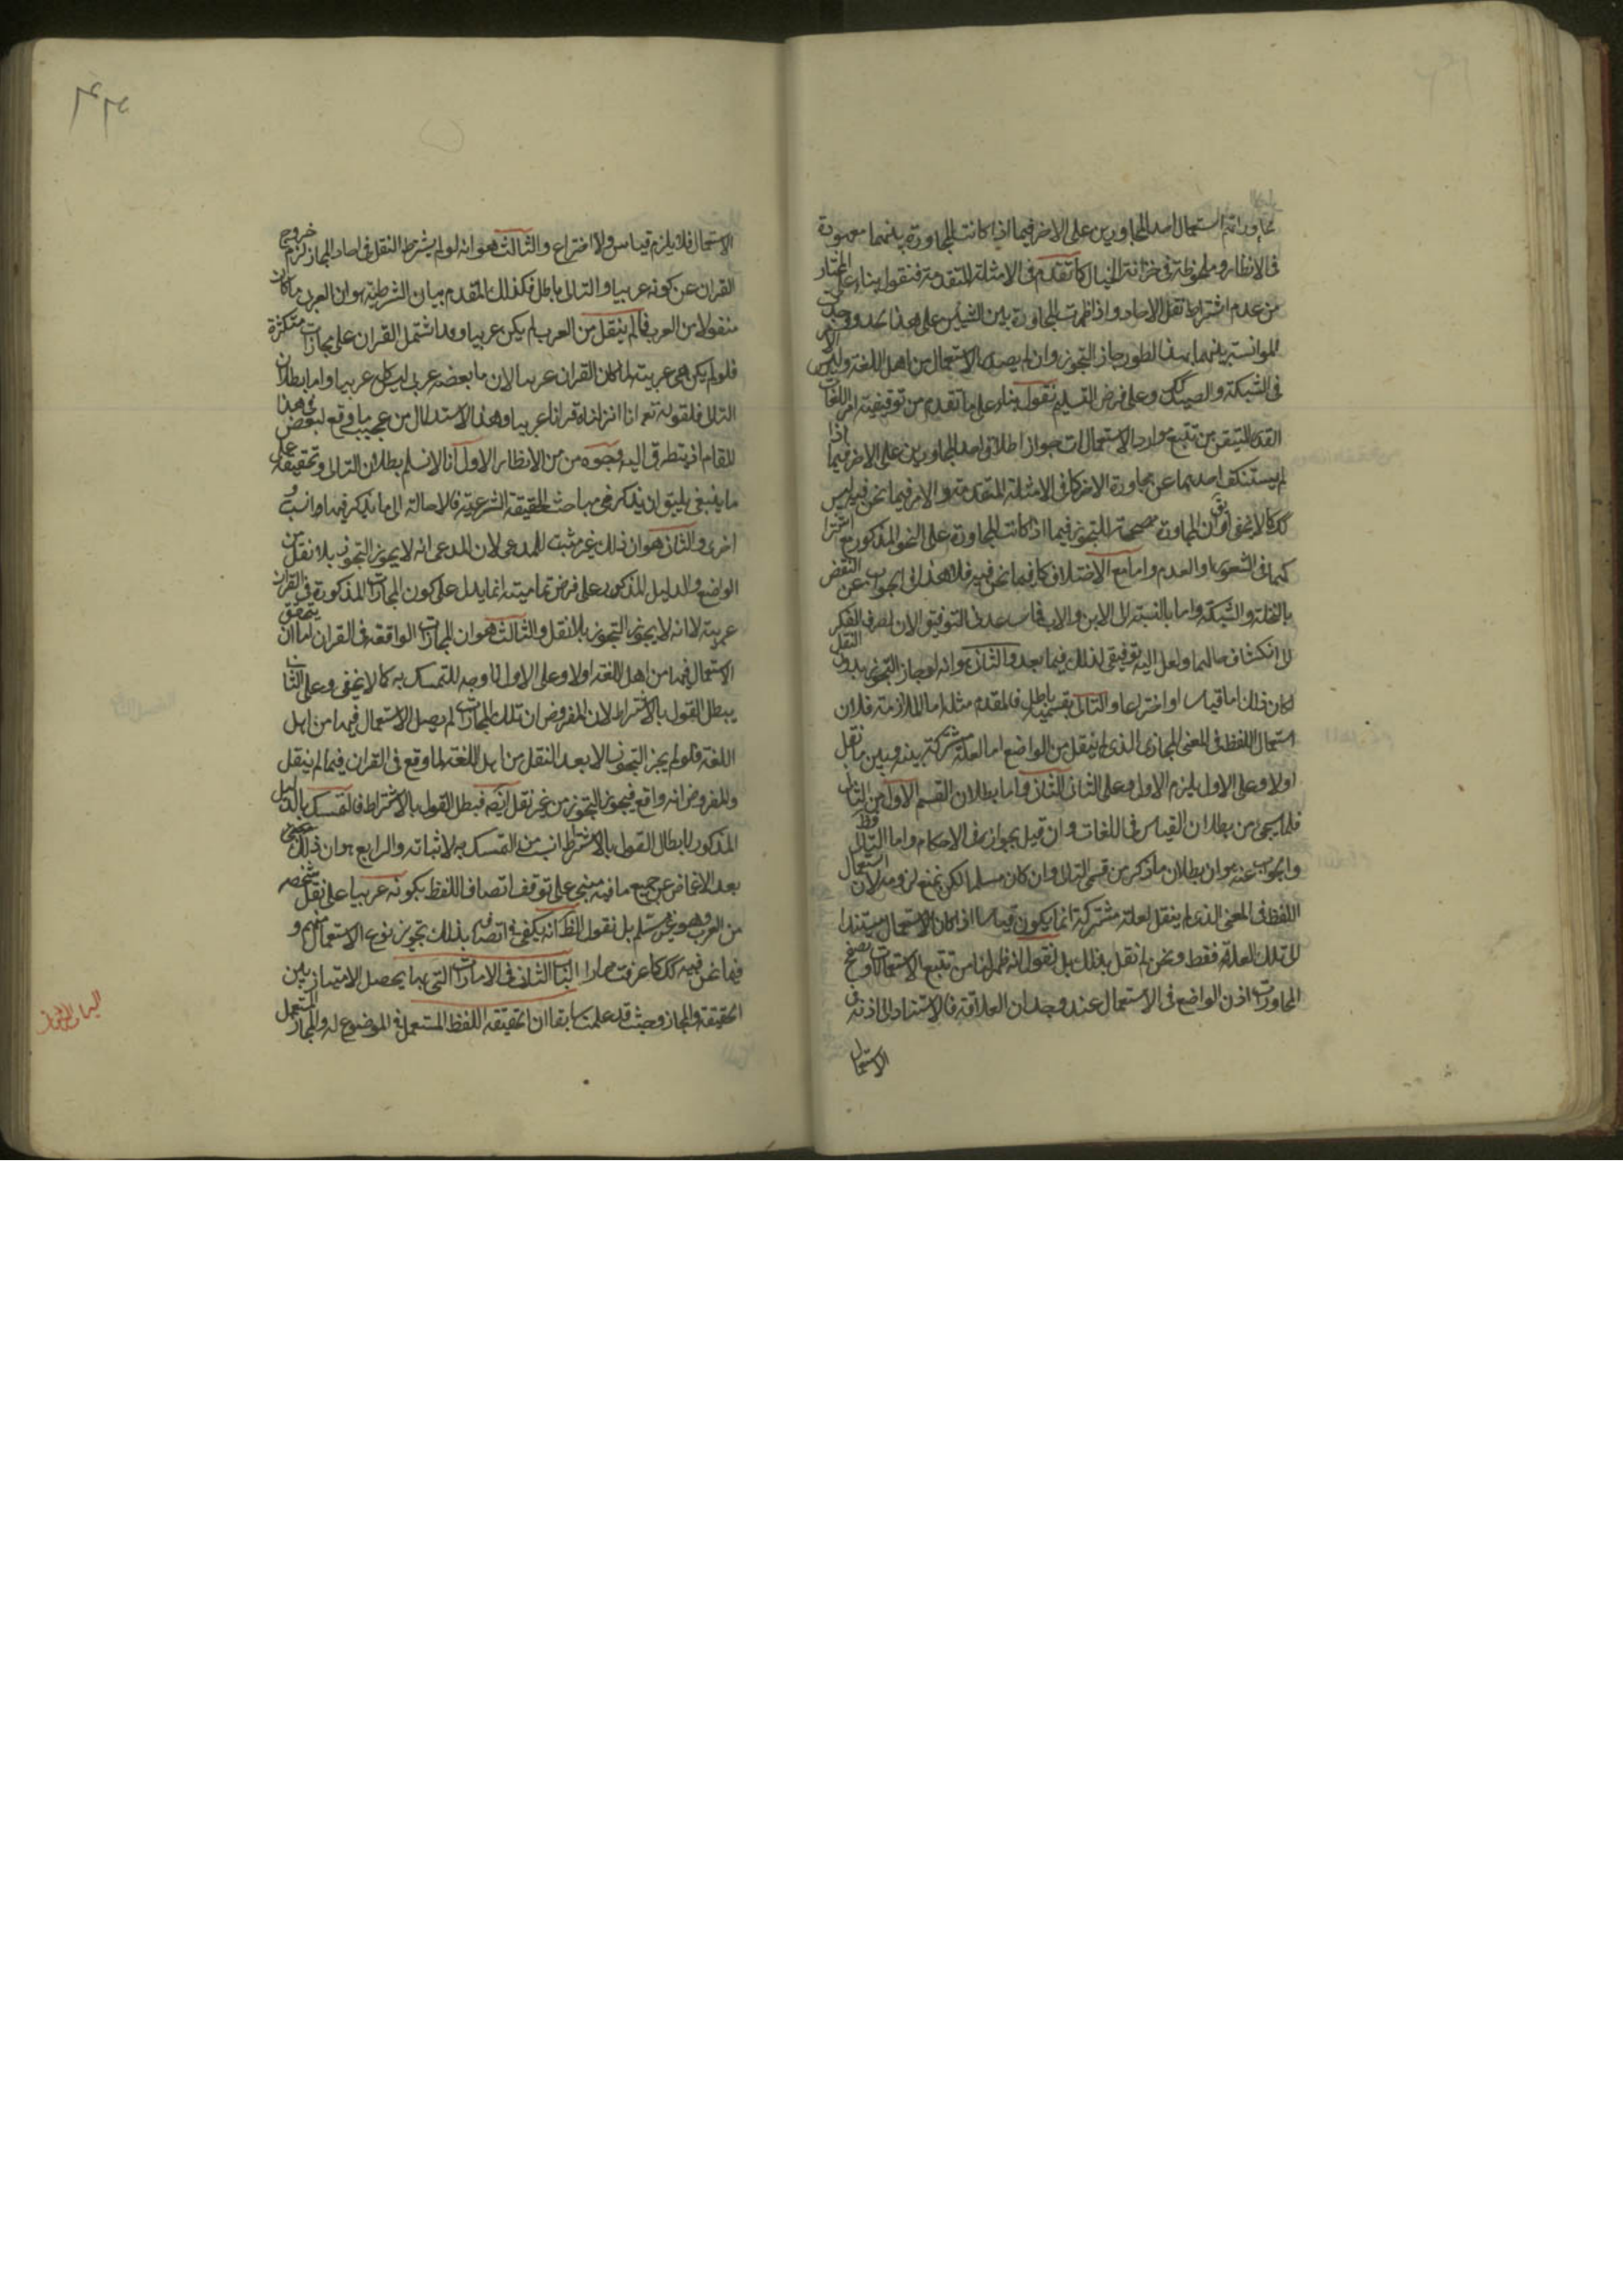 تجاوراتهم استعمال احد المجاورين على الاخر فيما اذا كانت المجاورة بينهما معهودة
فى الانظار وملحوظة فى خزانة الخيال كما تقدم فى الامثلة المتقدمة فنقول بناء على المختار
من عدم اشتراط نقل الاحاد واذا ظهرت المجاورة بين الشيئين على هذا الحد ووجدت
الموانسة بينهما بهذا الطور جاز التجوز وان لم يصل الاستعمال من اهل اللغة وليس الامر
فى الشبكة والصيد كك وعلى فرض التسليم نقول بناء على ما تقدم من توقيفية امر اللغات
القدر المتيقن من تتبع موارد الاستعمالات جواز اطلاق احد المجاورين على الاخر فيما اذا
لم يستنكف احدهما عن مجاورة الاخر كما فى الامثلة المتقدمة والامر فيما نحن فيه ليس
كك كما لا يخفى ان المجاورة مصححة للتجوز فيما اذا كانت المجاورة على النحو المذكور مع اشترا
كهما فى الشعور او العدم واما مع الاختلاف كما فيما نحن فيه فلا هذا فى الجواب عن النقض
بالنخلة والشبكة واما بالنسبة الى الابن والاب فما ساعدنى التوفيق الان لصرف الفكر
الى انكشاف حالهما ولعل اليه توفيقى لذلك فيما بعد والثانى هو انه لو جاز التجوز بدون النقل
لكان ذلك اما قياسا او اختراعا والتالى بقسميه باطل فالمقدم مثله اما الملازمة فلان
استعمال اللفظ فى المعنى المجازى الذى لم ينقل من الواضع اما لعلة مشتركة بينه وبين ما نقل
اولا وعلى الاول يلزم الاول وعلى الثانى الثانى واما بطلان القسم الاول من التالى
فلما سيجئ من بطلان القياس فى اللغات وان قيل بجوازه فى الاحكام واما الثانى فظ
والجواب عنه هو ان بطلان ما ذكر من قسمى التالى وان كان مسلما لكن نمنع لزومه لان استعمال
اللفظ فى المعنى الذى لم ينقل لعلة مشتركة انما يكون قياسا اذا كان الاستعمال مستندا
الى تلك العلة فقط ونحن لم نقل بذلك بل نقول انه ظهر لنا من تتبع الاستعمالات وتصفح
المحاورات اذن الواضع فى الاستعمال عند وجدان العلاقة فالاستناد الى اذنه فى
الاستعمال
الاستعمال فلا يلزم قياس ولا اختراع والثالث هو انه لو لم يشترط النقل فى احاد المجاز لزم خروج
القران عن كونه عربيا والتالى باطل فكذلك المقدم بيان الشرطية هو ان العربى ما كان
منقولا من العرب فما لم ينقل من العرب لم يكن عربيا وقد اشتمل القران على مجازات متكثرة
فلو لم يكن هى عربية لما كان القران عربيا لان ما بعضه عربى ليس كله عربيا واما بطلان
التالى فلقوله تعم انا انزلناه قرانا عربيا وهذا الاستدلال من عجيب ما وقع لبعض فى هذا
المقام اذ يتطرق اليه وجوه من الانظار الاول انا لا نسلم بطلان التالى وتحقيقه على
ما ينبغى يليق ان يذكر فى مباحث الحقيقة الشرعية فالاحالة الى ما نذكر فيها انسب و
احرى والثانى هو ان ذلك غير مثبت للمدعى لان المدعى انه لا يجوز التجوز بلا نقل من
الواضع والدليل المذكور على فرض تماميته انما يدل على كون المجازات المذكورة فى القران
عربية لا انه لا يجوز التجوز بلا نقل والثالث هو ان المجازات الواقعة فى القران اما ان يتحقق
الاستعمال فيها من اهل اللغة اولا وعلى الاول لا وجه للتمسك به كما لا يخفى وعلى الثانى
يبطل القول بالاشتراط لان المفروض ان تلك المجازات لم يصل الاستعمال فيها من اهل
اللغة فلو لم يجز التجوز الا بعد النقل من اهل اللغة لما وقع فى القران فيما لم ينقل
والمفروض انه واقع فيجوز التجوز من غير نقل ايضه فبطل القول بالاشتراط فالتمسك بالدليل
المذكور لابطال القول بالاشتراط انسب من التمسك به لاثباته والرابع هو ان ذلك حتى
بعد الاغماض عن جميع ما فيه مبنى على توقف اتصاف اللفظ بكونه عربيا على نقل شخصه
من العرب وهو غير مسلم بل نقول الظ انه يكفى فى اتصافه بذلك تجويز نوع الاستعمال منهم و
فيما نحن فيه كك كما عرفت مرارا الباب الثانى فى الامارات التى بها يحصل الامتياز بين
الحقيقة والمجاز وحيث قد علمت سابقا ان الحقيقة اللفظ المستعمل فى الموضوع له والمجاز المستعمل